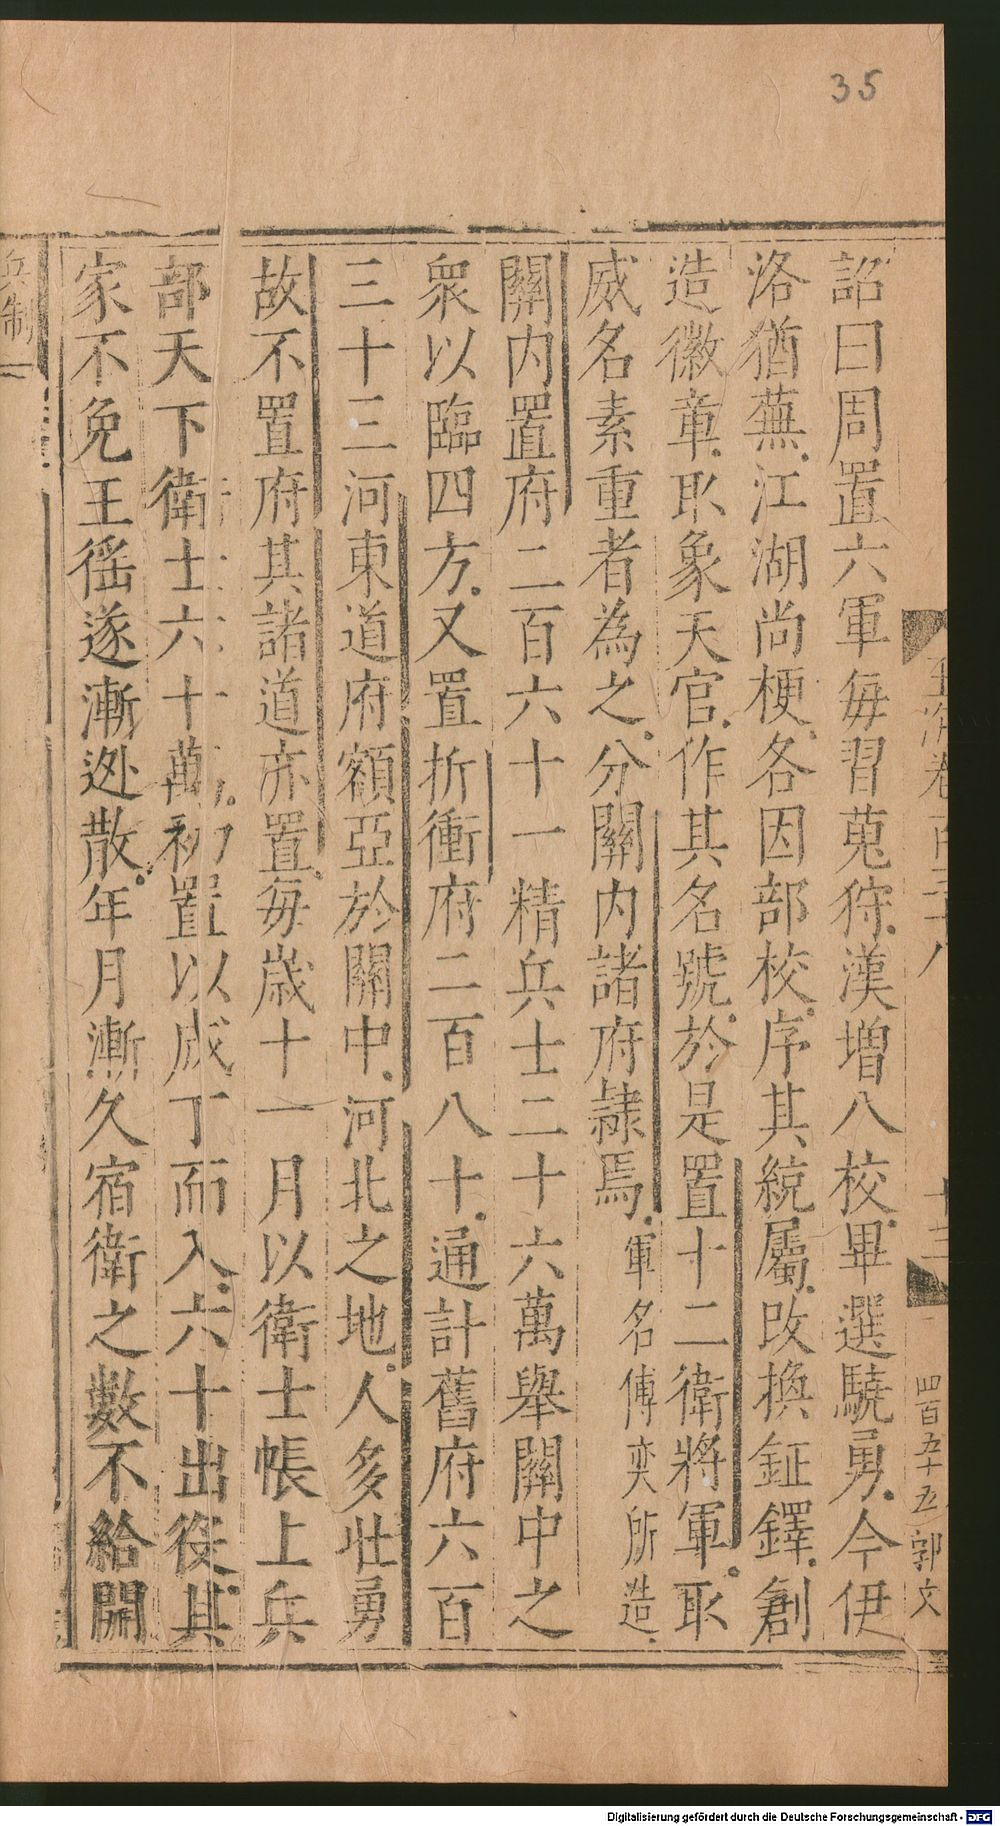 35
玉海卷百三十八
十三
四百五十五郭文
詔曰周置六軍每習蒐狩漢增八校畢選驍勇今伊
洛猶蕪江湖尚梗各因部校序其統屬改換鉦鐸創
造徽章取象天官作其名號於是置十二衛將軍取
威名素重者為之分關內諸府隷焉軍名傅奕所造
關内置府二百六十一精兵士二十六萬舉關中之
衆以臨四方又置折衝府二百八十通計舊府六百
三十三河東道府額亞於關中河北之地人多壯勇
故不置府其諸道亦置每歲十一月以衛士帳上兵
部天下衛士六十萬初置以成丁而入六十出役其
家不免王徭遂漸逃散年月漸久宿衛之數不給開
兵制一
Digitalisierung gefördert durch die Deutsche Forschungsgemeinschaft - DFG